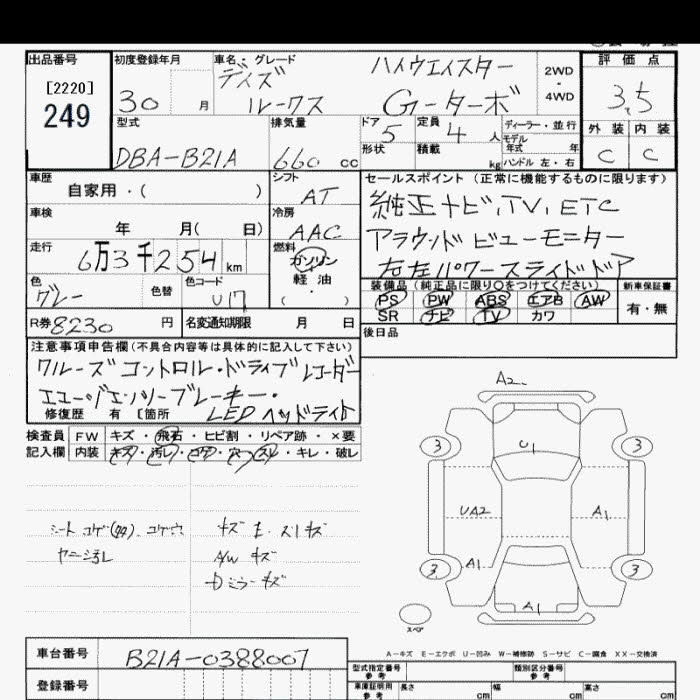 出品番号
[2220]
249
初度登録年月
30 月
車名・グレード
デイズ ハイウエイスター
ルークス Gターボ
2WD
・
4WD
評価点
3.5
外装 内装
C C
型式
DBA-B21A
排気量
660 cc
ドア
5
形状
定員
4 人
積載 kg
ディーラー・並行
モデル
年式 年
ハンドル 左・右
車歴
自家用・( )
シフト
AT
車検
年 月( 日)
冷房
AAC
走行
6万3千254 km
燃料
ガソリン
軽油
( ・ )
色
グレー
色替
色コード
U17
R券 8230 円
名変通知期限 月 日
セールスポイント (正常に機能するものに限ります)
純正ナビ,TV,ETC
アラウンドビューモニター
右左パワースライドドア
装備品 (純正品に限り○をつけてください)
PS PW ABS エアB AW
SR ナビ TV カワ
新車保証書
有・無
後日品
注意事項申告欄 (不具合内容等は具体的に記入して下さい)
クルーズコントロール・ドライブレコーダー
エマージェンシーブレーキ・
LEDヘッドライト
修復歴 有 [箇所
検査員
記入欄
FW キズ・飛石・ヒビ割・リペア跡・×要
内装 キズ・汚レ・コゲ・穴・スレ・キレ・破レ
シート コゲ コゲ穴
ヤニ汚レ
キズ スリキズ
A/W キズ
ミラーキズ
A2
U1
3 3
UA2 A1
A1
3 3
A1
スペア
A-キズ E-エクボ U-凹み W-補修跡 S-サビ C-腐食 XX-交換済
車台番号
B21A-0388007
登録番号
型式指定番号
参考
類別区分番号
参考
車庫証明用
参考
長さ cm 幅 cm 高さ cm